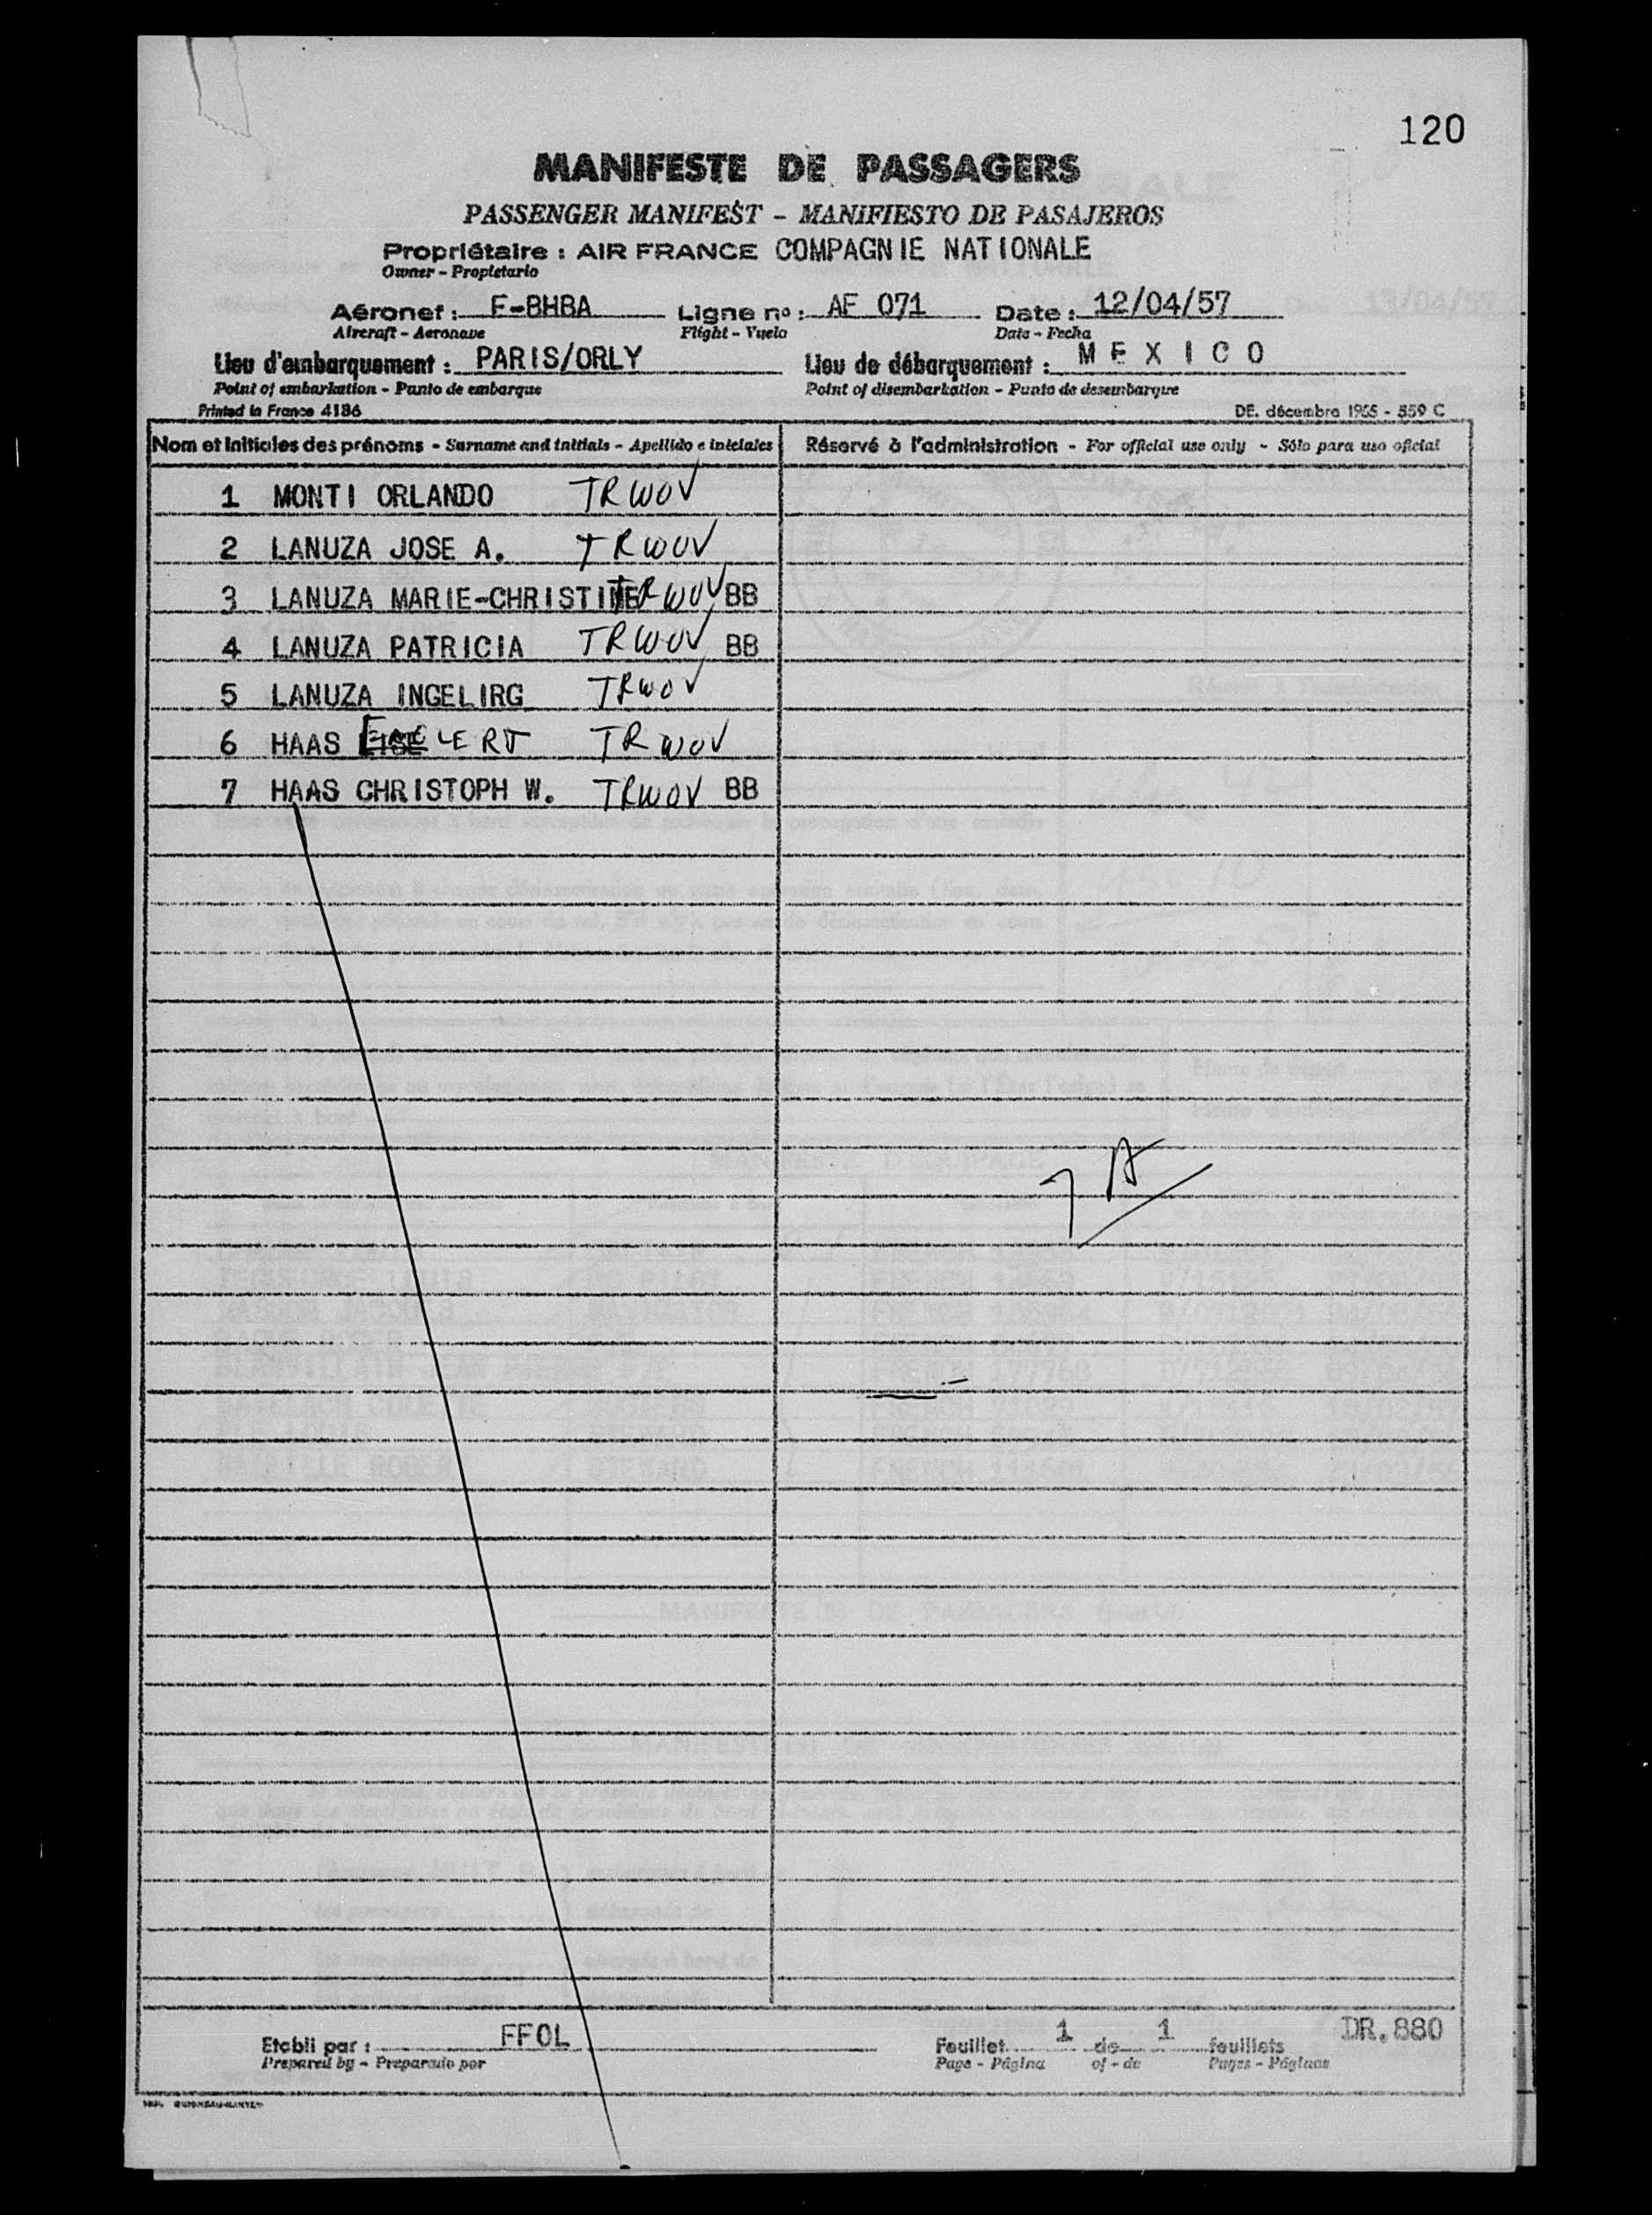 120
MANIFESTE DE PASSAGERS
PASSENGER MANIFEST - MANIFIESTO DE PASAJEROS
Propriétaire : AIR FRANCE COMPAGNIE NATIONALE
Owner - Propietario
Aéronef : F-BHBA Ligne no : AF 071 Date : 12/04/57
Aircraft - Aeronave Flight - Vuelo Date - Fecha
Lieu d'embarquement : PARIS/ORLY Lieu de débarquement : MEXICO
Point of embarkation - Punto de embarque Point of disembarkation - Punto de desembarque
Printed in France 4186 DE. décembre 1955 - 559 C
Nom et initiales des prénoms - Surname and initials - Apellido e iniciales Réservé à l'administration - For official use only - Sólo para uso oficial
1 MONTI ORLANDO TRWOV
2 LANUZA JOSE A. TRWOV
3 LANUZA MARIE-CHRISTINE TRWOV BB
4 LANUZA PATRICIA TRWOV BB
5 LANUZA INGELIRG TRWOV
6 HAAS TRWOV
7 HAAS CHRISTOPH W. TRWOV BB
7 A
Etabli par : FFOL Feuillet 1 de 1 feuillets DR.880
Prepared by - Preparado por Page - Página of - de Pages - Páginas